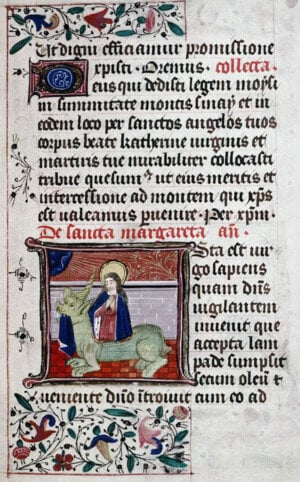 Ut digni efficiamur promissione
xpisti · Oremus · collecta
Deus qui dedisti legem moysi
in summitate montis sinay et in
eodem loco per sanctos angelos tuos
corpus beate katherine uirginis et
martiris tue mirabiliter collocasti
tribue quesum9 ut eius meritis et
intercessione ad montem qui xp̄s
est ualeamus puenire · Per xp̄m ·
De sancta margareta an̄ ·
Ista est uir
go sapiens
quam dn̄s
uigilantem
inuenit que
accepta lam
pade sumpsit
secum oleū et
ueniente dn̄o ītroiuit cum eo ad